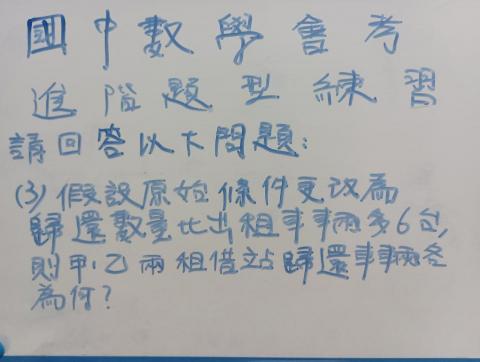 國中數學會考
進階題型練習
請回答以下問題:
(3) 假設原始條件更改為
歸還數量比出租車輛多6台,
則甲、乙兩租借站歸還車輛各
為何?